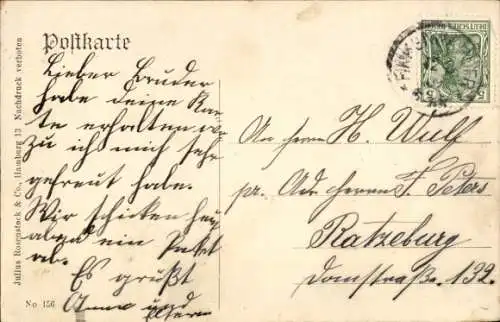 Postkarte
Lieber Bruder
habe deine Kar-
te erhalten wo-
zu ich mich sehr
gefreut habe.
Wir schicken heu
abend ein Paket
ab.
Es grüßt
Anna und
Eltern
An Herrn H. Wulf
pr. Adr. Herrn F. Peters
Ratzeburg
Domstraße. 132.
Julius Rosenstock & Co., Hamburg 13 Nachdruck verboten
No 156
DEUTSCHES REICH
5